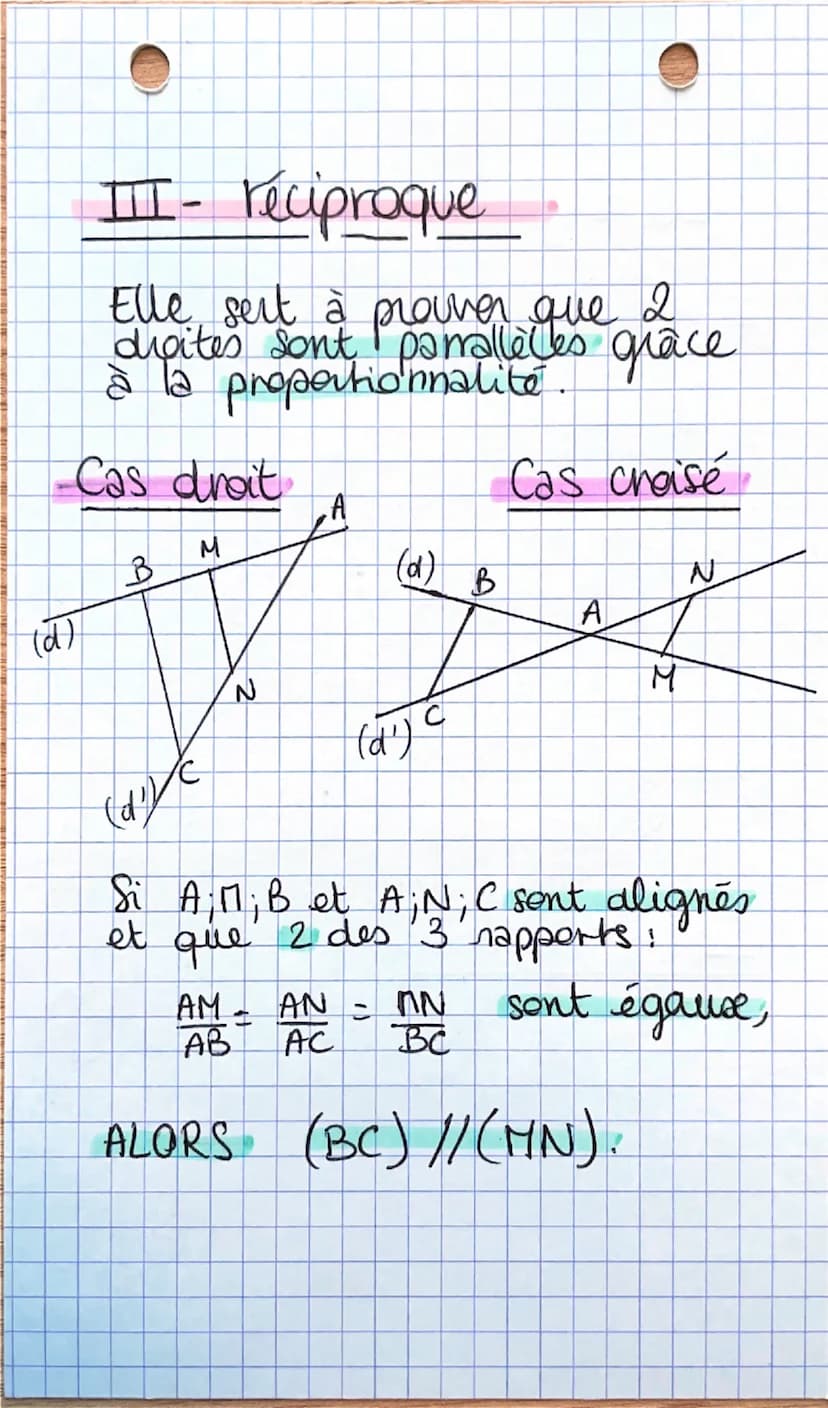 III - réciproque
Elle sert à prouver que 2
droites sont parallèles grâce
à la proportionnalité.
Cas droit
Cas croisé
A
M
B
(d)
N
C
(d')
(d)
B
A
N
M
C
(d')
Si A;M;B et A;N;C sont alignés
et que 2 des 3 rapports :
AM/AB = AN/AC = MN/BC sont égaux,
ALORS (BC) // (MN).